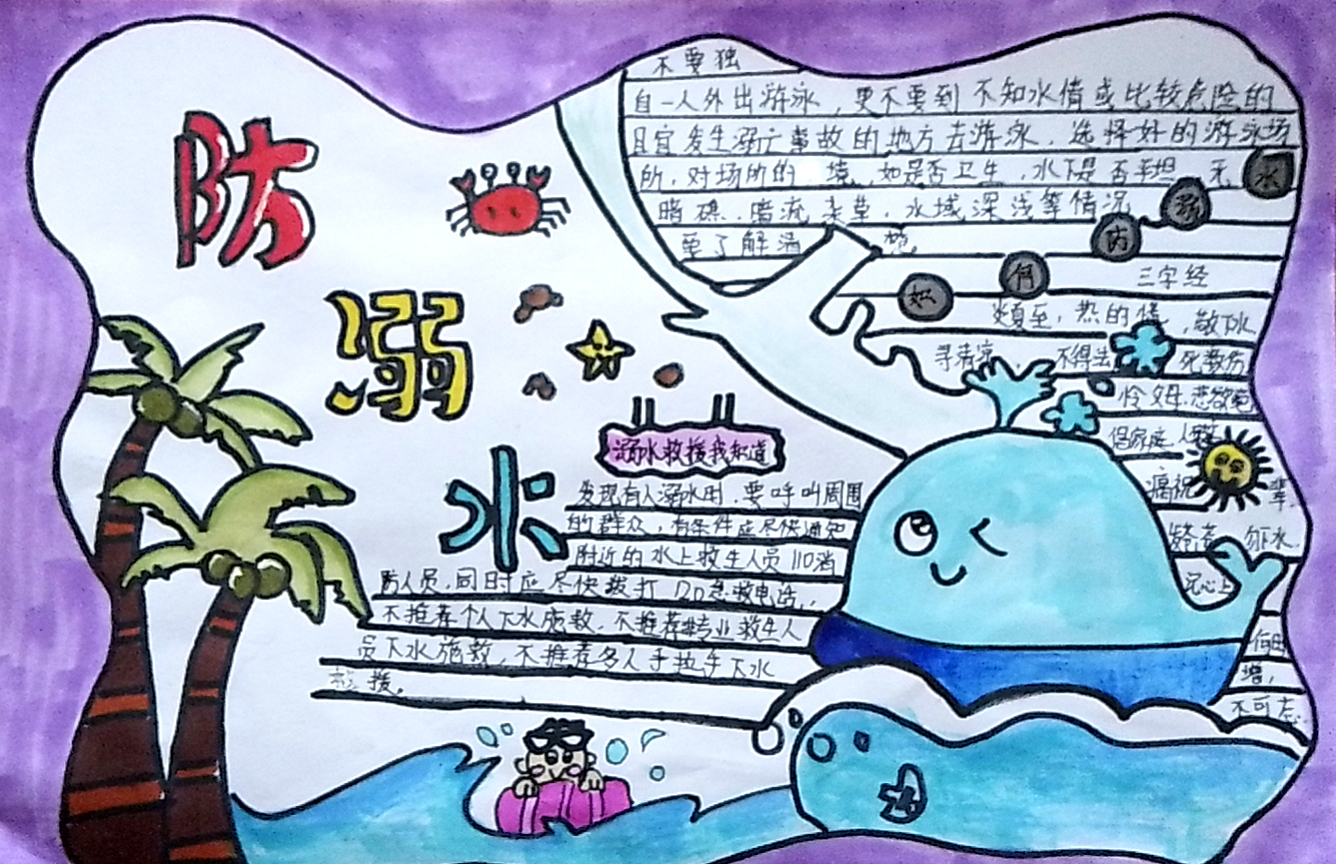 防
溺
水
不要独
自一人外出游泳，更不要到不知水情或比较危险的
且宜发生溺亡事故的地方去游泳，选择好的游泳场
所，对场所的 境，如是否卫生，水下是否平坦，无
暗礁、暗流、杂草，水域深浅等情况
要了解清 楚。
如何防溺水
三字经
炎夏至，热的慌，敞下水
寻清凉 不得去 死数伤
怜父母，悲欲
侣家庭
溺水救援我知道
发现有人溺水时，要呼叫周围
的群众，有条件应尽快通知
附近的水上救生人员110消
防人员，同时应尽快拨打120急救电话，
不推荐个人下水施救，不推荐非专业救生人
员下水施救，不推荐多人手拉手下水
救援。
勿下水
记心上
增，
不可忘